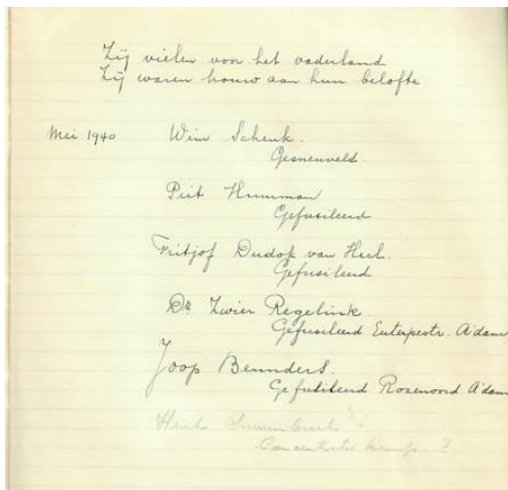 Zij vielen voor het vaderland
Zij waren trouw aan hun belofte
Mei 1940 Wim Schenk.
Gesneuveld.
Piet
Gefusileerd
Fritjof Dudok van Heel.
Gefusileerd
Dr. Zwier Regelink.
Gefusileerd Euterpestr. A'dam
Joop Beunders.
Gefusileerd Rozenoord A'dam
Henk
Concentratie kamp ?